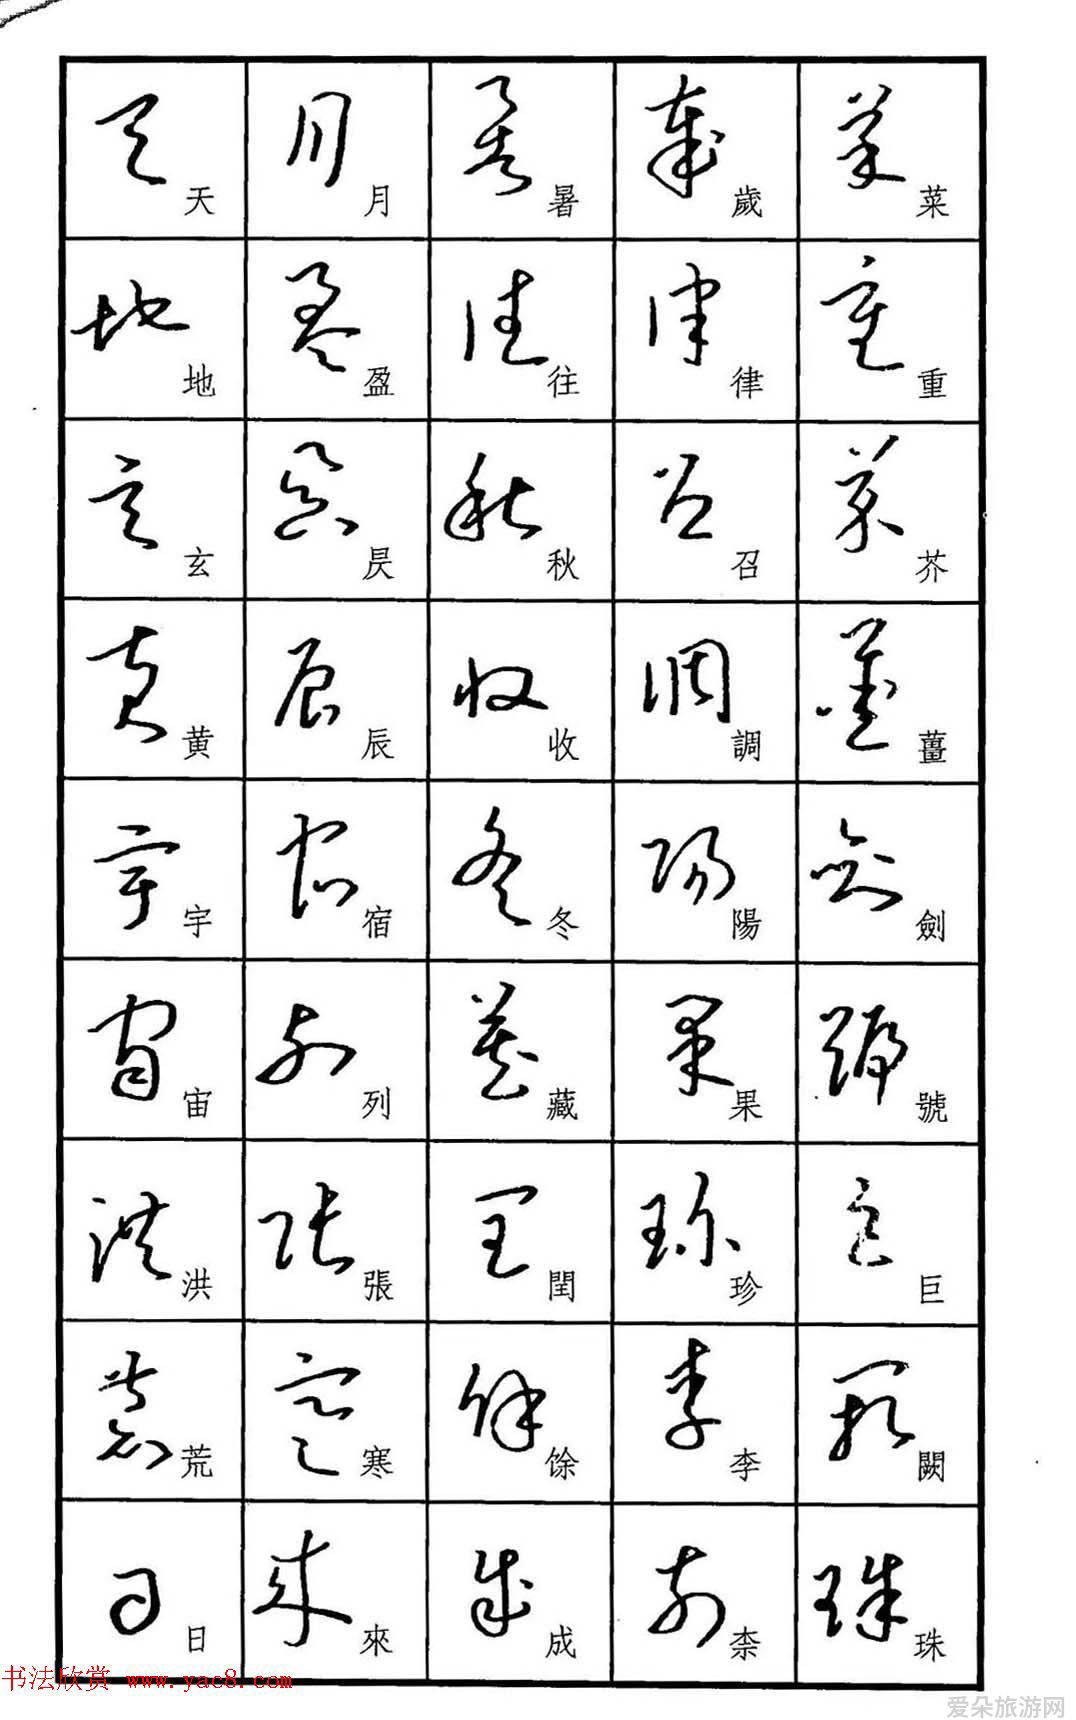 天地玄黄宇宙洪荒日
月盈昃辰宿列張寒來
暑往秋收冬藏閏馀成
歲律召調陽果珍李柰
菜重芥薑劍號巨闕珠
书法欣赏 www.yac8.com
爱朵旅游网